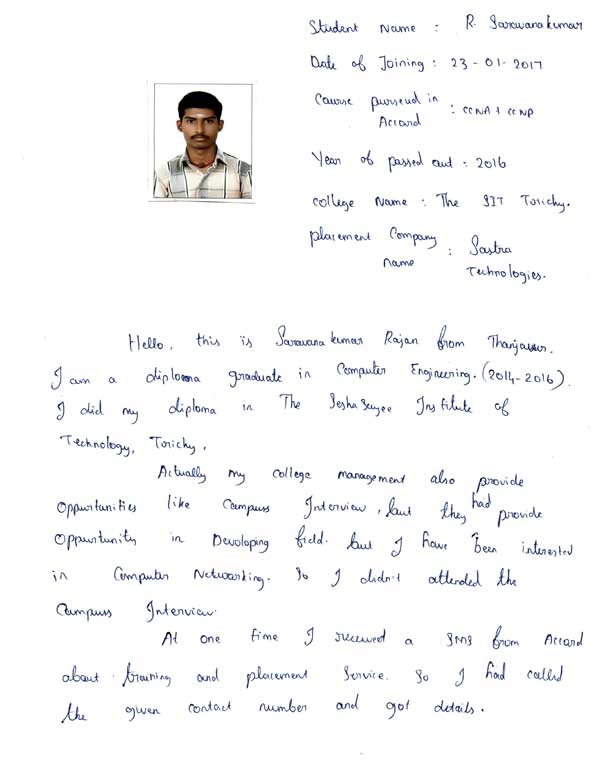 Student Name : R. Saravanakumar
Date of Joining : 23 - 01 - 2017
Course pursued in Accard : CCNA + CCNP
Year of passed out : 2016
college Name : The SIT Turichy.
placement Company Name : Sastra Technologies.
Hello, this is Saravana kumar Rajan from Thanjavur.
I am a diploma graduate in Computer Engineering. (2014-2016).
I did my diploma in The Sesha Sayee Institute of
Technology, Turichy.
Actually my college management also provide
oppurtunities like Campuss Interview, but they had provide
oppurtunity in Devoloping field. but I have been interested
in Computer Networking. So I didn't attended the
Campuss Interview.
At one time I received a SMS from Accard
about training and placement Service. So I had called
the given contact number and got details.